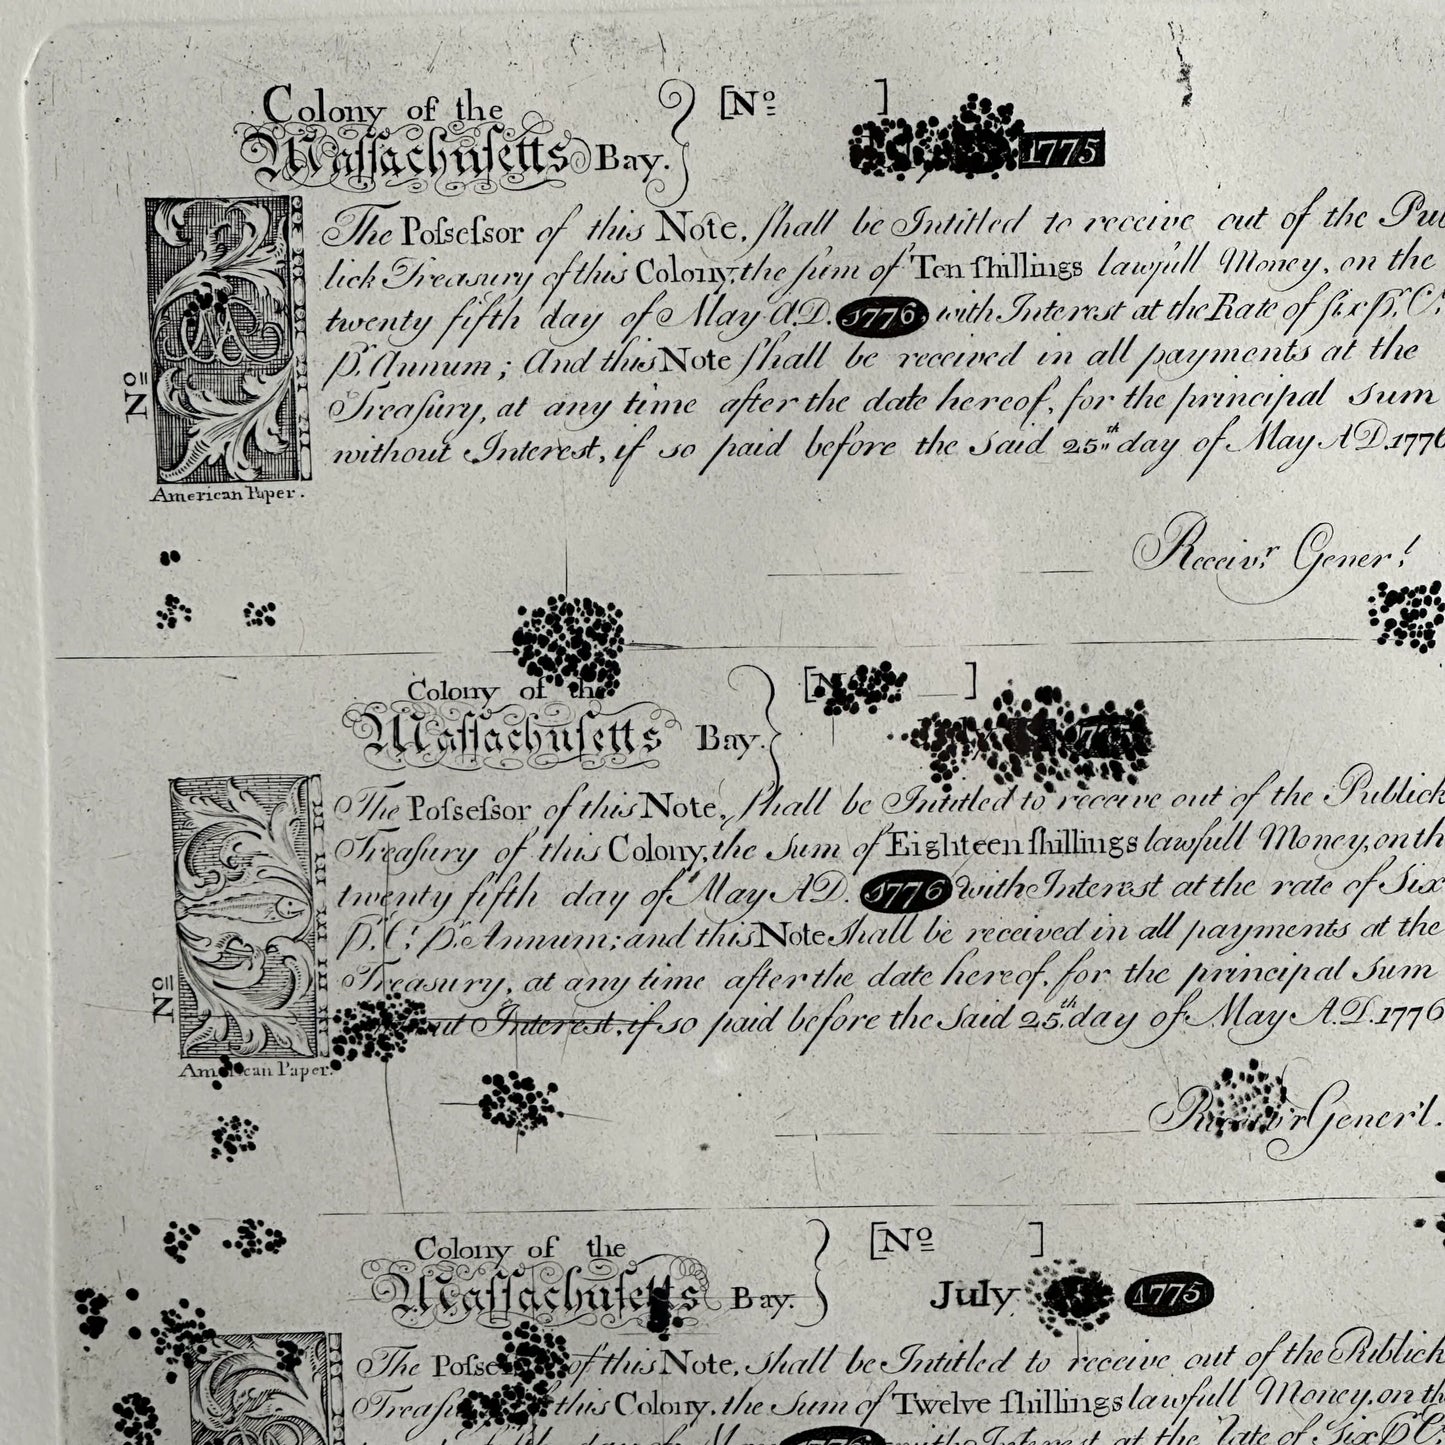 Colony of the
Maſſachuſetts Bay.
[Nº ]
1775
The Poſseſsor of this Note, ſhall be Intitled to receive out of the Pub
lick Treasury of this Colony, the ſum of Ten ſhillings lawfull Money, on the
twenty fifth day of May A.D. 1776 with Interest at the Rate of ſix pr. Ct.
pr. Annum; And this Note ſhall be received in all payments at the
Treaſury, at any time after the date hereof, for the principal Sum
without Interest, if so paid before the Said 25th day of May AD. 1776
Nº
American Paper.
Receivr. Generl.
Colony of the
Maſſachuſetts Bay.
[N ]
The Poſseſsor of this Note, ſhall be Intitled to receive out of the Publick
Treaſury of this Colony, the Sum of Eighteen ſhillings lawfull Money, on th
twenty fifth day of May AD. 1776 with Interest at the rate of Six
pr. Ct. pr. Annum; and this Note Shall be received in all payments at the
Treasury, at any time after the date hereof, for the principal Sum
ut Interest, if so paid before the Said 25th day of May A.D. 1776
Nº
American Paper.
Gener'l.
Colony of the
Maſſachuſetts Bay.
[Nº ]
July 1775
The Poſse of this Note, Shall be Intitled to receive out of the Publick
Treaſu this Colony, the Sum of Twelve ſhillings lawfull Money, on th
fifth day of May 1776 with Interest at the rate of Six pr Ct.